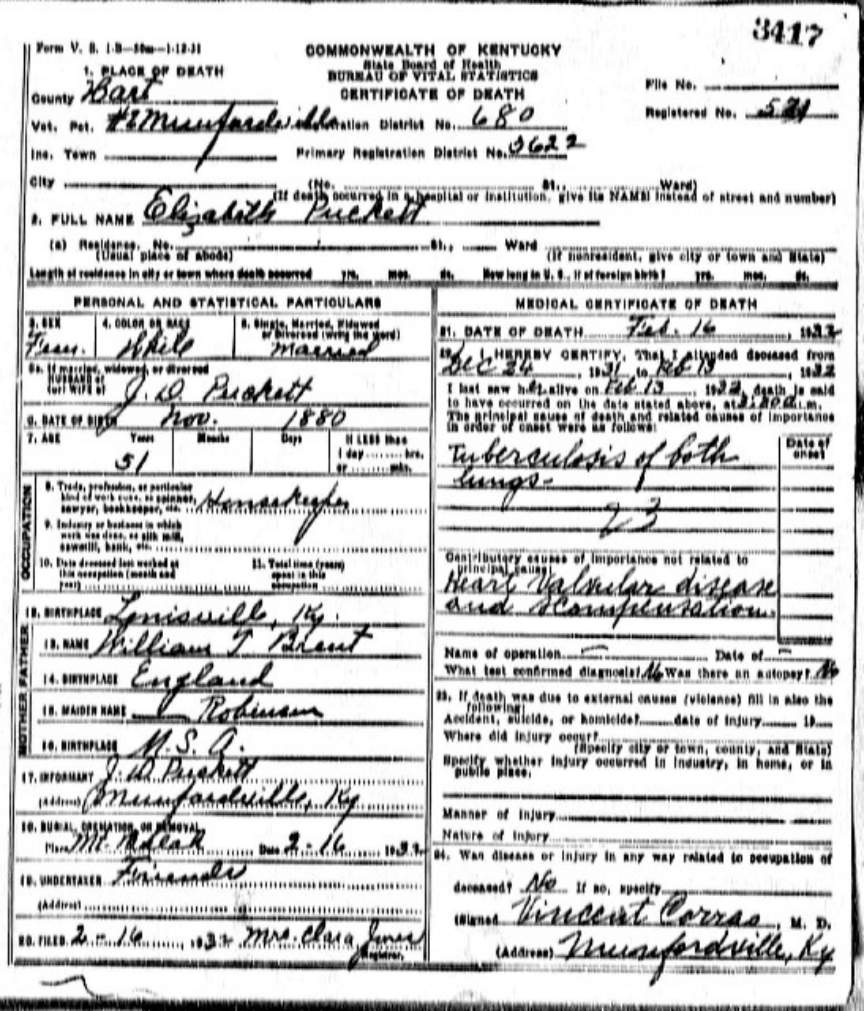 3417
Form V. S. 1-B—50m—1-12-31
COMMONWEALTH OF KENTUCKY
State Board of Health
BUREAU OF VITAL STATISTICS
CERTIFICATE OF DEATH
1. PLACE OF DEATH
County Hart
File No.
Vot. Pct. Munfordville Registration District No. 680
Registered No.
Inc. Town
Primary Registration District No.
City (No. St., Ward)
(If death occurred in a hospital or institution, give its NAME instead of street and number)
2. FULL NAME Elizabeth Puckett
(a) Residence. No. St., Ward
(Usual place of abode) (If nonresident, give city or town and State)
Length of residence in city or town where death occurred yrs. mos. ds. How long in U. S., if of foreign birth? yrs. mos. ds.
PERSONAL AND STATISTICAL PARTICULARS
3. SEX Fem.
4. COLOR OR RACE White
5. Single, Married, Widowed or Divorced (write the word) Married
5a. If married, widowed, or divorced
HUSBAND of
(or) WIFE of J. D. Puckett
6. DATE OF BIRTH Nov. 1880
7. AGE Years Months Days If LESS than
51 1 day hrs.
or min.
OCCUPATION
8. Trade, profession, or particular
kind of work done, as spinner,
sawyer, bookkeeper, etc. Housekeeper
9. Industry or business in which
work was done, as silk mill,
sawmill, bank, etc.
10. Date deceased last worked at
this occupation (month and
year)
11. Total time (years)
spent in this
occupation
12. BIRTHPLACE Louisville, Ky.
FATHER
13. NAME William T Brent
14. BIRTHPLACE England
MOTHER
15. MAIDEN NAME Robinson
16. BIRTHPLACE U.S.A.
17. INFORMANT J. D. Puckett
(Address) Munfordville, Ky
18. BURIAL, CREMATION, OR REMOVAL
Place Mt. Date 2-16 1932
19. UNDERTAKER
(Address)
20. FILED 2-16, 1932 Mrs. Clara Jones
Registrar.
MEDICAL CERTIFICATE OF DEATH
21. DATE OF DEATH Feb. 16, 1932
22. I HEREBY CERTIFY, That I attended deceased from
Dec 24 1931 to Feb 13, 1932
I last saw her alive on Feb 13, 1932, death is said
to have occurred on the date stated above, at m.
The principal cause of death and related causes of importance
in order of onset were as follows:
Date of onset
Tuberculosis of both
lungs-
23
Contributory causes of importance not related to
principal cause:
Heart Valvular disease
and decompensation.
Name of operation Date of
What test confirmed diagnosis? No Was there an autopsy? No
23. If death was due to external causes (violence) fill in also the
following:
Accident, suicide, or homicide? date of injury 19
Where did injury occur?
(Specify city or town, county, and State)
Specify whether injury occurred in industry, in home, or in
public place.
Manner of injury
Nature of injury
24. Was disease or injury in any way related to occupation of
deceased? No If so, specify
(Signed) Vincent Corrao, M. D.
(Address) Munfordville, Ky